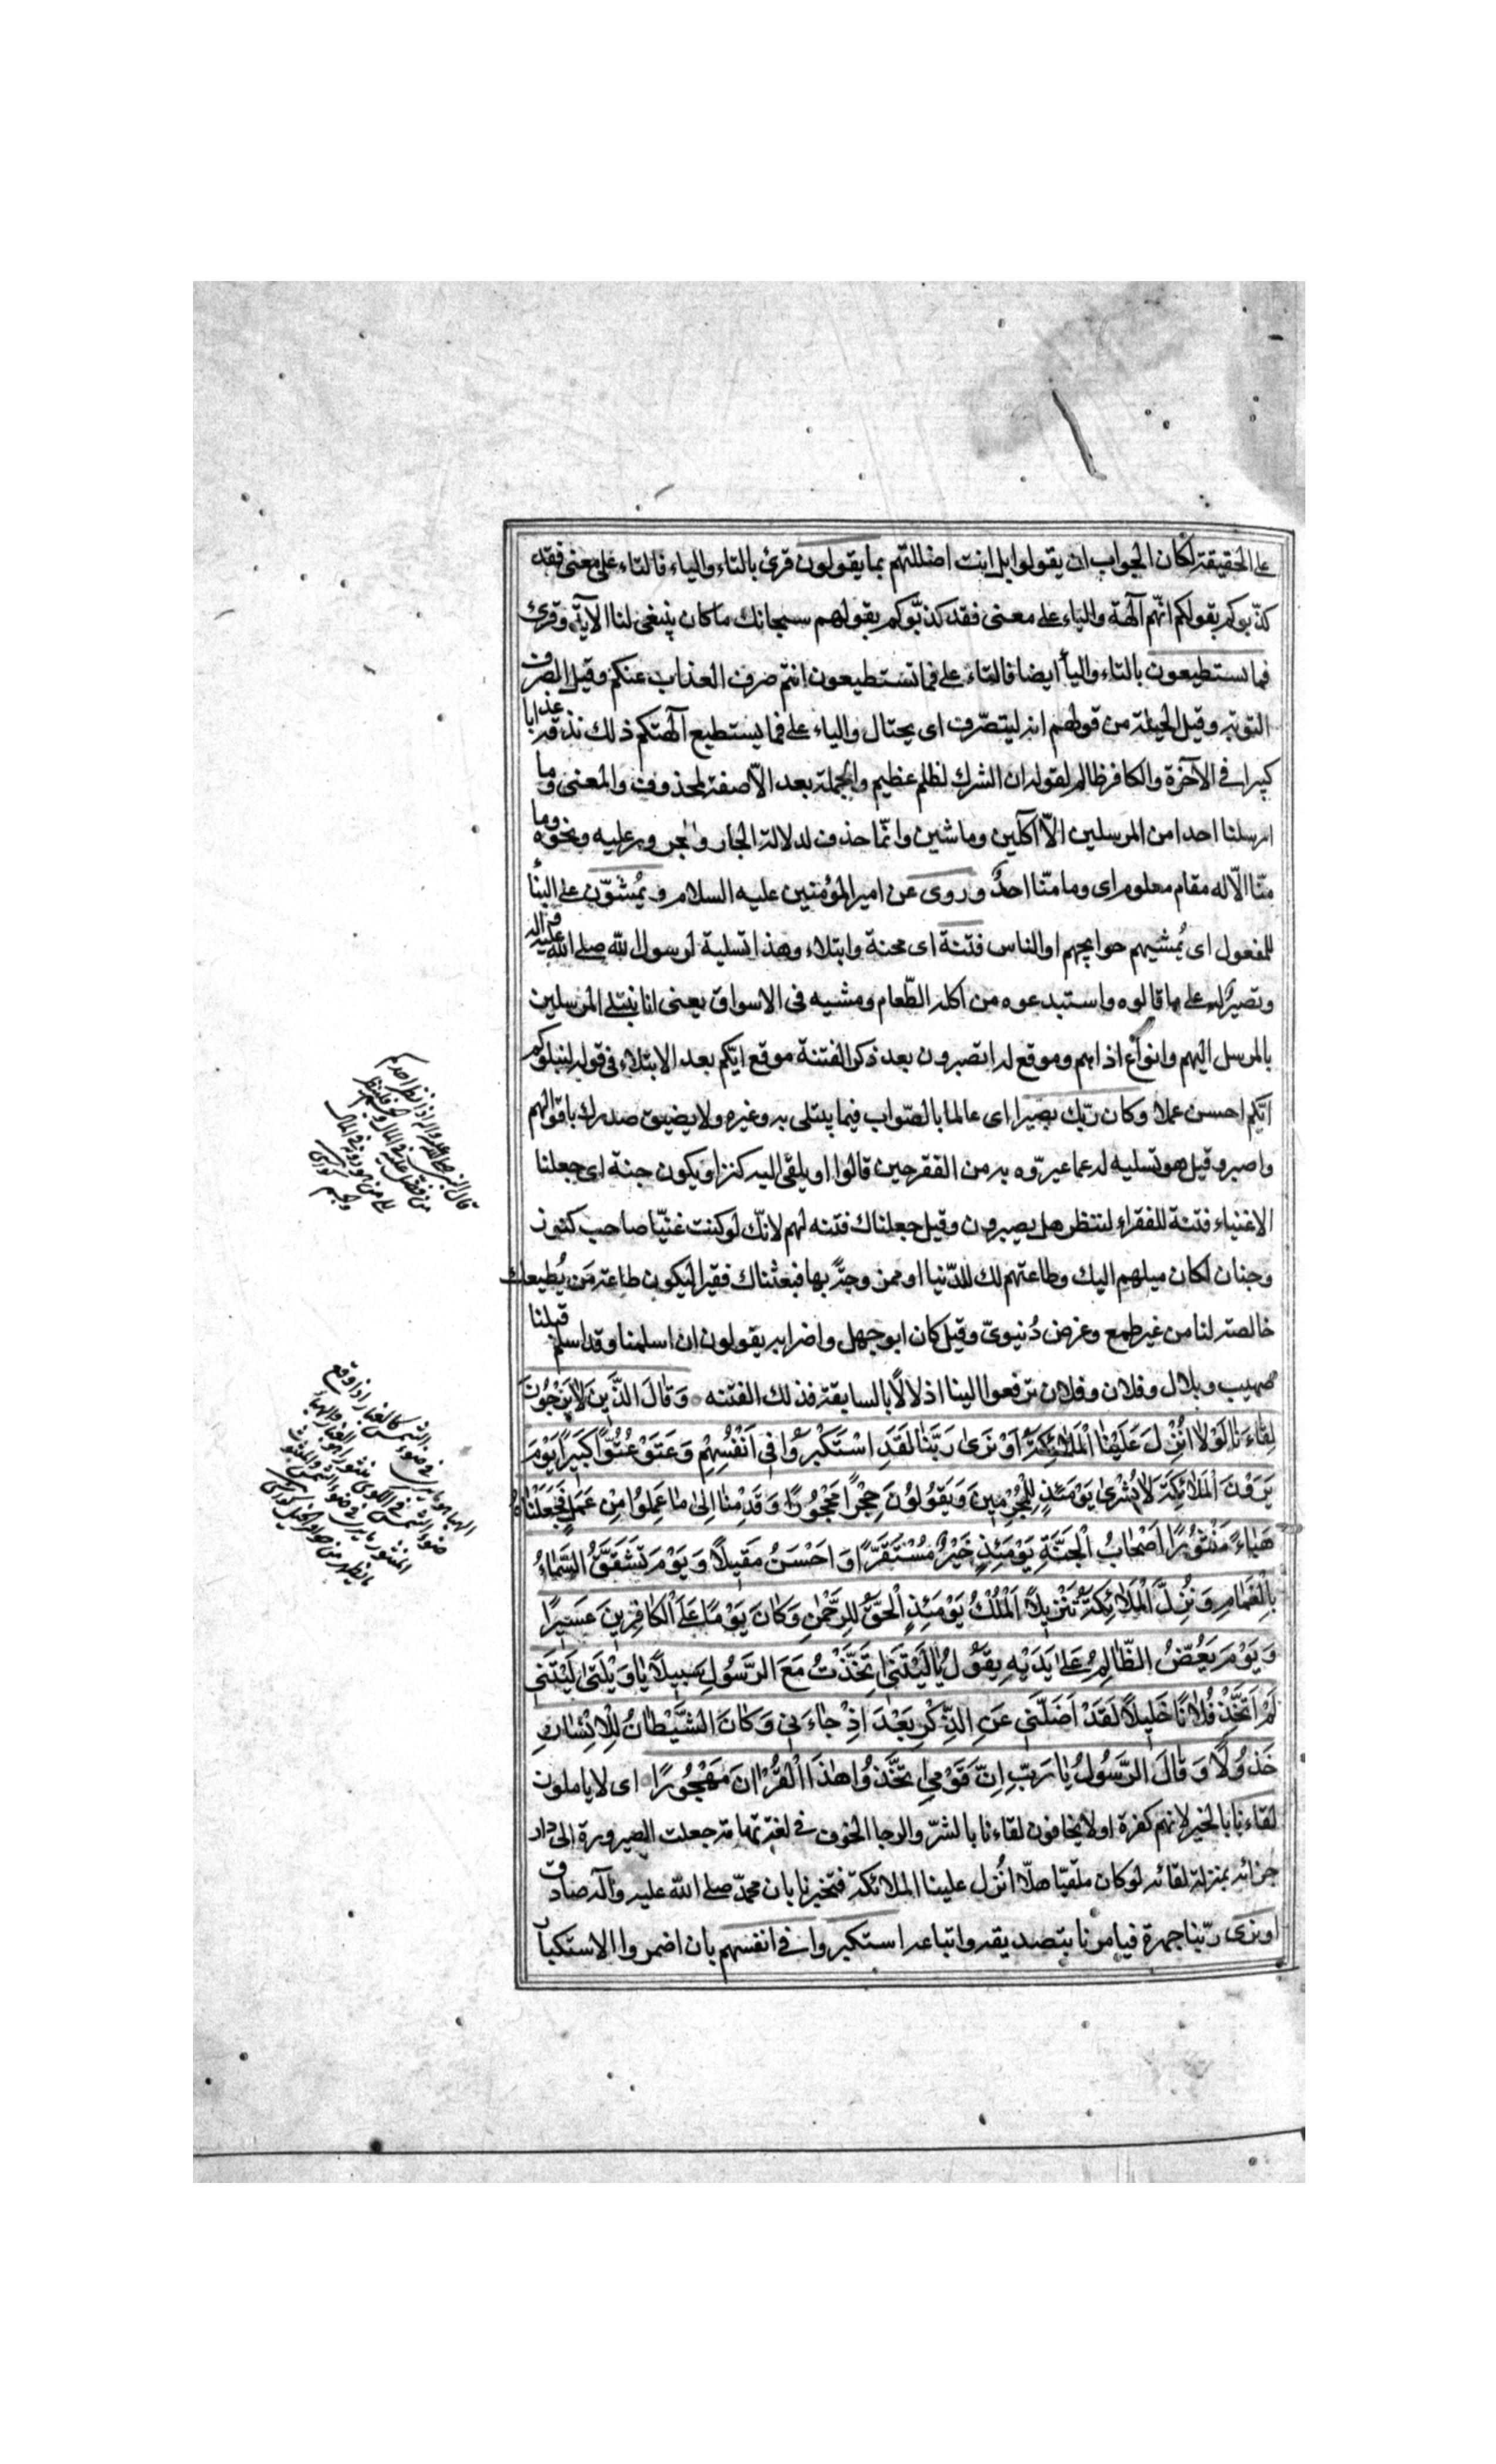 على الحقيقة لكان الجواب ان يقولوا بل انت اضللتهم بما يقولون قرئ بالتاء والياء فالتاء على معنى فقد
كذّبوكم بقولكم انّهم آلهة والياء على معنى فقد كذّبوكم بقولهم سبحانك ماكان ينبغى لنا الآية وقرئ
فما تستطيعون بالتاء واليأ ايضا فالتاء على فما تستطيعون انتم صرف العذاب عنكم وقيل الصرف
التوبة وقيل الحيلة من قولهم انه ليتصّرف اى يحتال والياء على فما يستطيع آلهتكم ذلك نذقه عذابا
كبيرا فى الآخرة والكافر ظالم لقوله ان الشرك لظلم عظيم والجملة بعد الاّ صفة لمحذوف والمعنى وما
ارسلنا احدا من المرسلين الاّ آكلين وماشين وانّما حذف لدلالة الجار والمجرور عليه ونحوه وما
منّا الاّ له مقام معلوم اى وما منّا احدٌ وروى عن امير المؤمنين عليه السلام ويُمشّون على البنأ
للمفعول اى يُمشيهم حوايجهم او الناس فتنة اى محنة وابتلاء وهذا تسلية لرسول الله صلى الله عليه وآله
وتصبيرٌ له على ما قالوه واستبدعوه من اكله الطّعام ومشيه فى الاسواق يعنى انا نبتلى المرسلين
بالمرسل اليهم وانواع اذاهم وموقع له اتصبرون بعد ذكر الفتنة موقع ايّكم بعد الابتلاء فى قوله ليبلوكم
ايّكم احسن عملا وكان ربّك بصيرا اى عالما بالصّواب فيما يبتلى به وغيره ولا يضيق صدرك باقوالهم
واصبر وقيل هو تسليه له عما عيرّوه به من الفقر حين قالوا او يلقى اليه كنز او يكون جنة اى جعلنا
الاغنياء فتنة للفقراء لننظر هل يصبرون وقيل جعلناك فتنه لهم لانّك لو كنت غنيّا صاحب كنوز
وجنان لكان ميلهم اليك وطاعتهم لك للدّنيا او ممزوجةً بها فبعثناك فقيرا ليكون طاعة مَن يُطيعك
خالصة لنا من غير طمع وغرض دُنيوىّ وقيل كان ابوجهل واضرابه يقولون ان اسلمنا وقد اسلم قبلنا
صهيب وبلال وفلان وفلان ترفعوا الينا اذلالاً بالسابقة فذلك الفتنه وَقالَ الذَّينَ لاٰيَرْجُونَ
لِقٰاءَنٰا لَوْلاٰ اُنْزِلَ عَلَيْنٰا الْمَلاٰئِكَةُ اَوْ نَرىٰ رَبَّنٰا لَقَدِ اسْتَكْبَرُوا فى اَنْفُسِهِمْ وَعَتَوْ عُتُوًّا كَبيرًا يَوْمَ
يَرَوْنَ الْمَلاٰئِكَةَ لاٰبُشْرىٰ يَوْمَئِذٍ لِلْمُجْرِمينَ وَيَقُولُونَ حِجْرًا مَحْجُورًا وَقَدِمْنٰا اِلىٰ مٰا عَمِلُوا مِنْ عَمَلٍ فَجَعَلْنٰاهُ
هَبٰاءً مَنْثُورًا اَصْحٰابُ الْجَنَّةِ يَوْمَئِذٍ خَيْرٌ مُسْتَقَرًّا وَاَحْسَنُ مَقيلاً وَيَوْمَ تَشَقَّقُ السَّمٰاءُ
بِالْغَمٰامِ وَنُزِّلَ الْمَلاٰئِكَةُ تَنْزيلاً اَلْمُلْكُ يَوْمَئِذٍ الْحَقُّ لِلرَّحْمٰنِ وَكٰانَ يَوْمًا عَلَى الْكٰافِرينَ عَسيرًا
وَيَوْمَ يَعَضُّ الظّٰالِمُ عَلىٰ يَدَيْهِ يَقُولُ يٰالَيْتَنى اتَّخَذْتُ مَعَ الرَّسُولِ سَبيلاً يٰاوَيْلَتىٰ لَيْتَنى
لَمْ اَتَّخِذْ فُلاٰنًا خَليلاً لَقَدْ اَضَلَّنى عَنِ الذِّكْرِ بَعْدَ اِذْ جٰاءَنى وَكٰانَ الشَّيْطٰانُ لِلْاِنْسٰانِ
خَذُولاً وَقٰالَ الرَّسُولُ يٰارَبِّ اِنَّ قَوْمِى اتَّخَذُوا هٰذَا الْقُرْاٰنَ مَهْجُورًا اى لا ياملون
لقاءنا بالخير لانهم كفرة او لا يخافون لقاءنا بالشرّ والرجا الخوف فى لغة تهامة جعلت الصيرورة الى دار
جزائه بمنزلة لقائه لو كان ملقيّا هلّا اُنزل علينا الملائكة فتخبرنا بان محمدّ صلى الله عليه وآله صادق
او نرى ربّنا جهرة فيامرنا بتصديقه واتباعه استكبروا فى انفسهم بان اضمروا الاستكبار